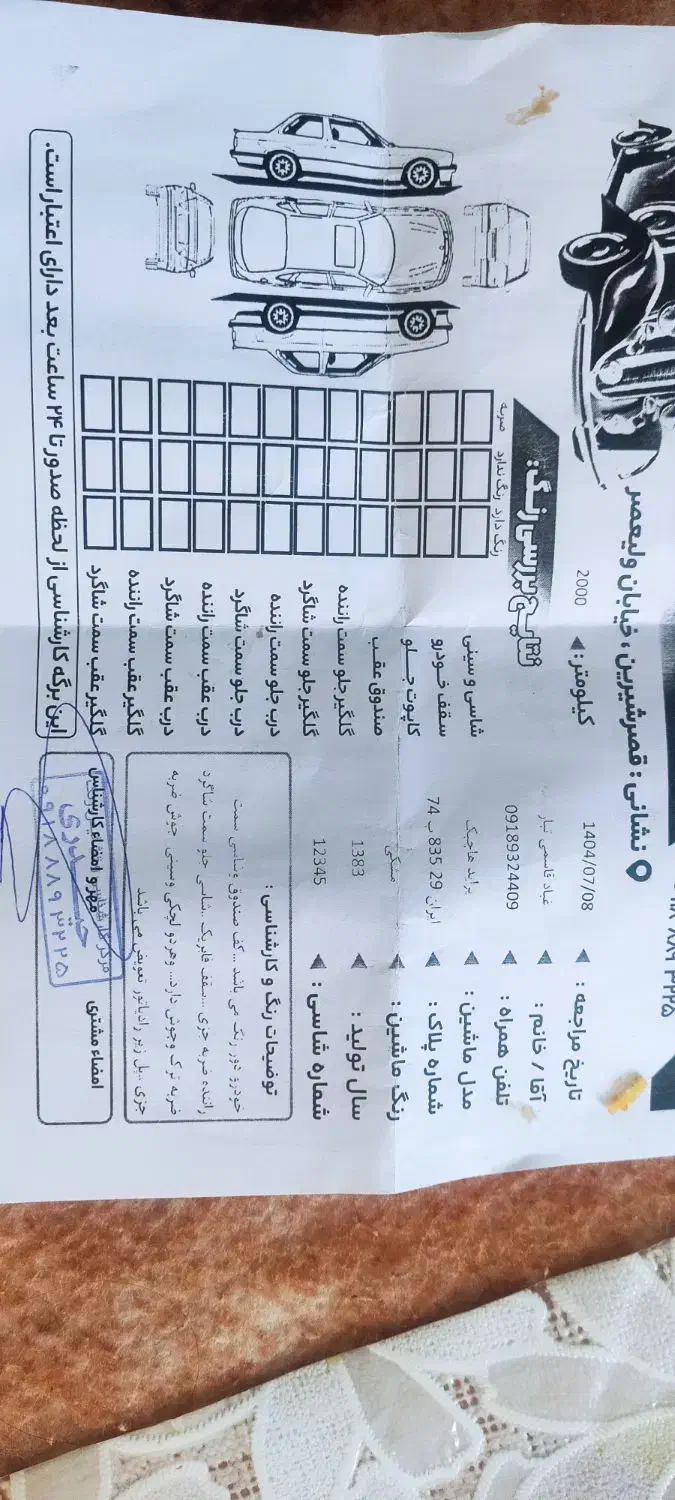 نشانی : قصرشیرین ، خیابان ولیعصر
تاریخ مراجعه : 1404/07/08
کیلومتر : 2000
آقا / خانم : عباد قاسمی تبار
تلفن همراه : 09189324409
مدل ماشین : پراید هاچبک
شماره پلاک : ایران 29 835 ب 74
رنگ ماشین : مشکی
سال تولید : 1383
شماره شاسی : 12345
نتایج بررسی رنگ :
رنگ دارد رنگ ندارد ضربه
شاسی و سینی
سقف خودرو
کاپوت جلو
صندوق عقب
گلگیر جلو سمت راننده
گلگیر جلو سمت شاگرد
درب جلو سمت راننده
درب جلو سمت شاگرد
درب عقب سمت راننده
درب عقب سمت شاگرد
گلگیر عقب سمت راننده
گلگیر عقب سمت شاگرد
توضیحات رنگ و کارشناسی :
خودرو دور رنگ می باشد ...کف صندوق وشاسی سمت
راننده ضربه جزی ...سقف فابریک ..شاسی جلو سمت شاگرد
ضربه ترک وجوش دارد... وهردو لچکی وسینی جوش ضربه
جزی ..پل زیر رادیاتور تعویض می باشد
امضاء مشتری
مهر و امضاء کارشناس
حیدری
۰۹۱۸۸۸۹۳۲۲۵
این برگه کارشناسی از لحظه صدور تا ۲۴ ساعت بعد دارای اعتبار است.